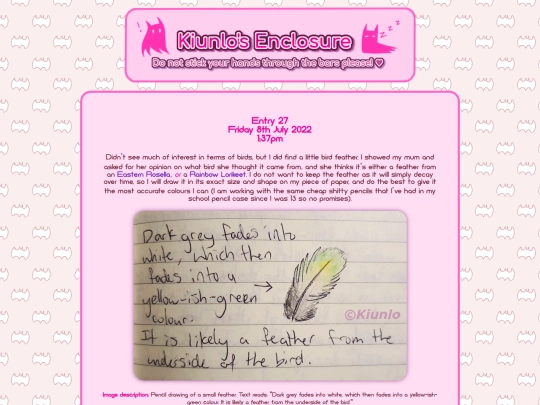 Kiunlo's Enclosure
Do not stick your hands through the bars please! ♡
Entry 27
Friday 8th July 2022
1:37pm
Didn't see much of interest in terms of birds, but I did find a little bird feather. I showed my mum and
asked for her opinion on what bird she thought it came from, and she thinks it's either a feather from
an Eastern Rosella, or a Rainbow Lorikeet. I do not want to keep the feather as it will simply decay
over time, so I will draw it in its exact size and shape on my piece of paper, and do the best to give it
the most accurate colours I can (I am working with the same cheap shitty pencils that I've had in my
school pencil case since I was 13 so no promises).
Dark grey fades into
white, which then
fades into a
yellow-ish-green
colour.
©Kiunlo
It is likely a feather from the
underside of the bird.
Image description: Pencil drawing of a small feather. Text reads: "Dark grey fades into white, which then fades into a yellow-ish-
green colour. It is likely a feather from the underside of the bird."